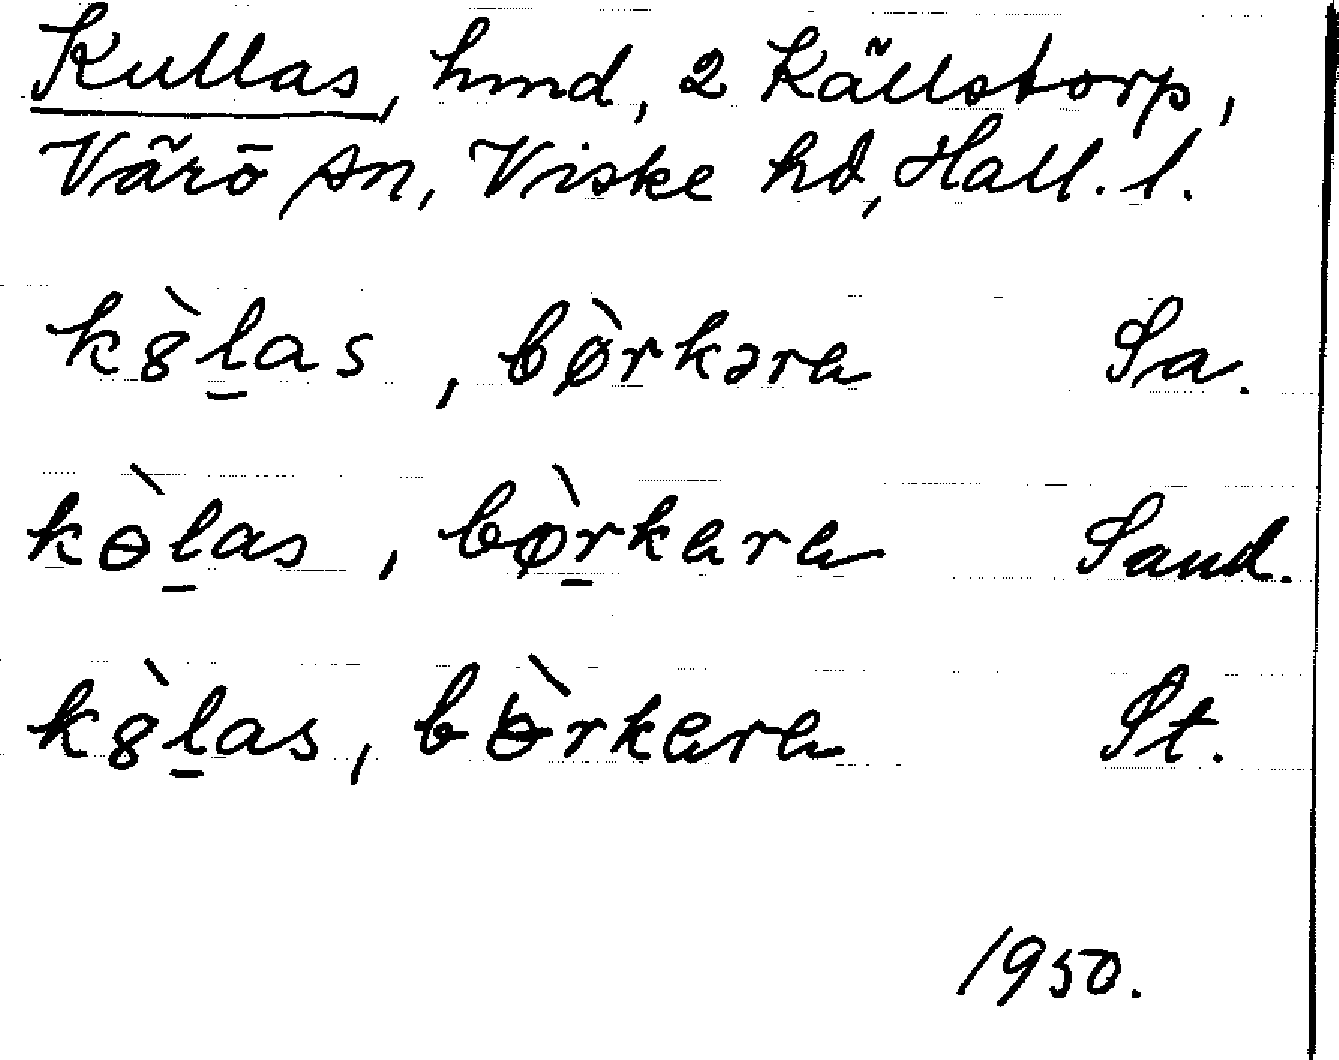 Kullas, hmd, 2 Källstorp,
Värö sn, Viske hd, Hall. l.
k8̀l̲as, bø̀rkəra Sa.
kɵ̀l̲as, bø̀r̲kara Sand.
k8̀l̲as, bɵ̀rkara St.
1950.